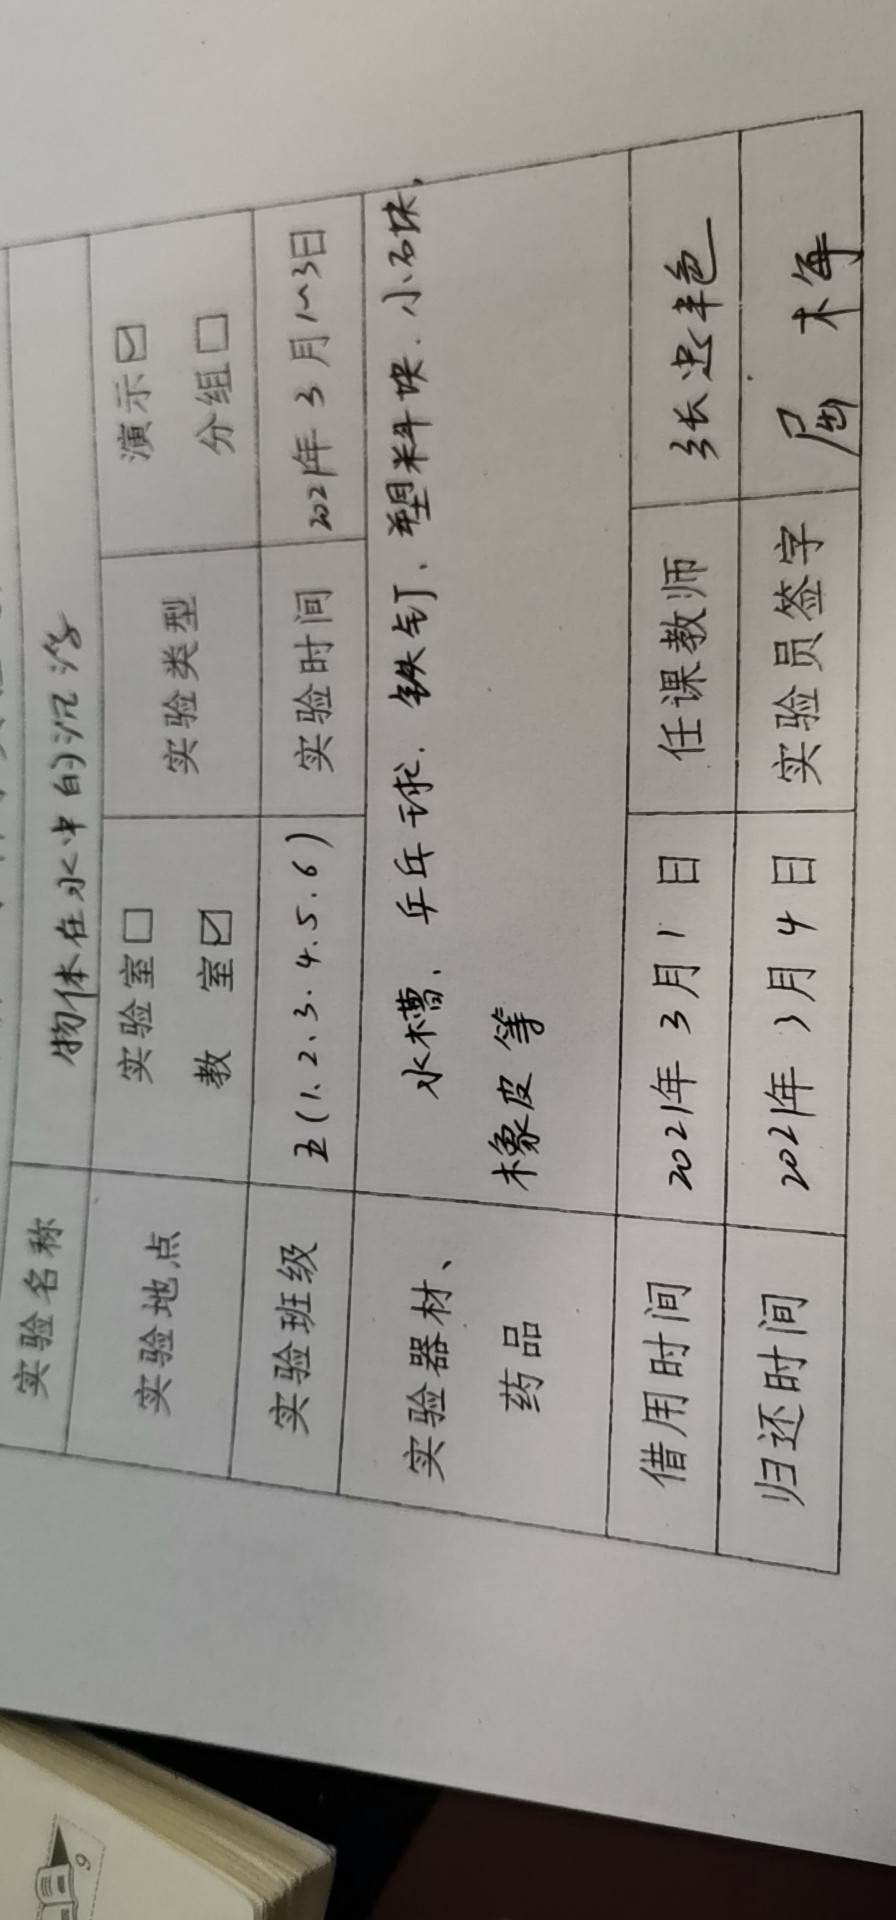 实验名称 物体在水中的沉浮
实验地点 实验室□ 实验类型 演示☑
教 室☑ 分组□
实验班级 五(1、2、3.4.5.6) 实验时间 2021年3月1~3日
实验器材、 水槽、乒乓球、铁钉、塑料块、小石块、
药品 橡皮等
借用时间 2021年3月1日 任课教师 张忠艳
归还时间 2021年3月4日 实验员签字 屈梅
6